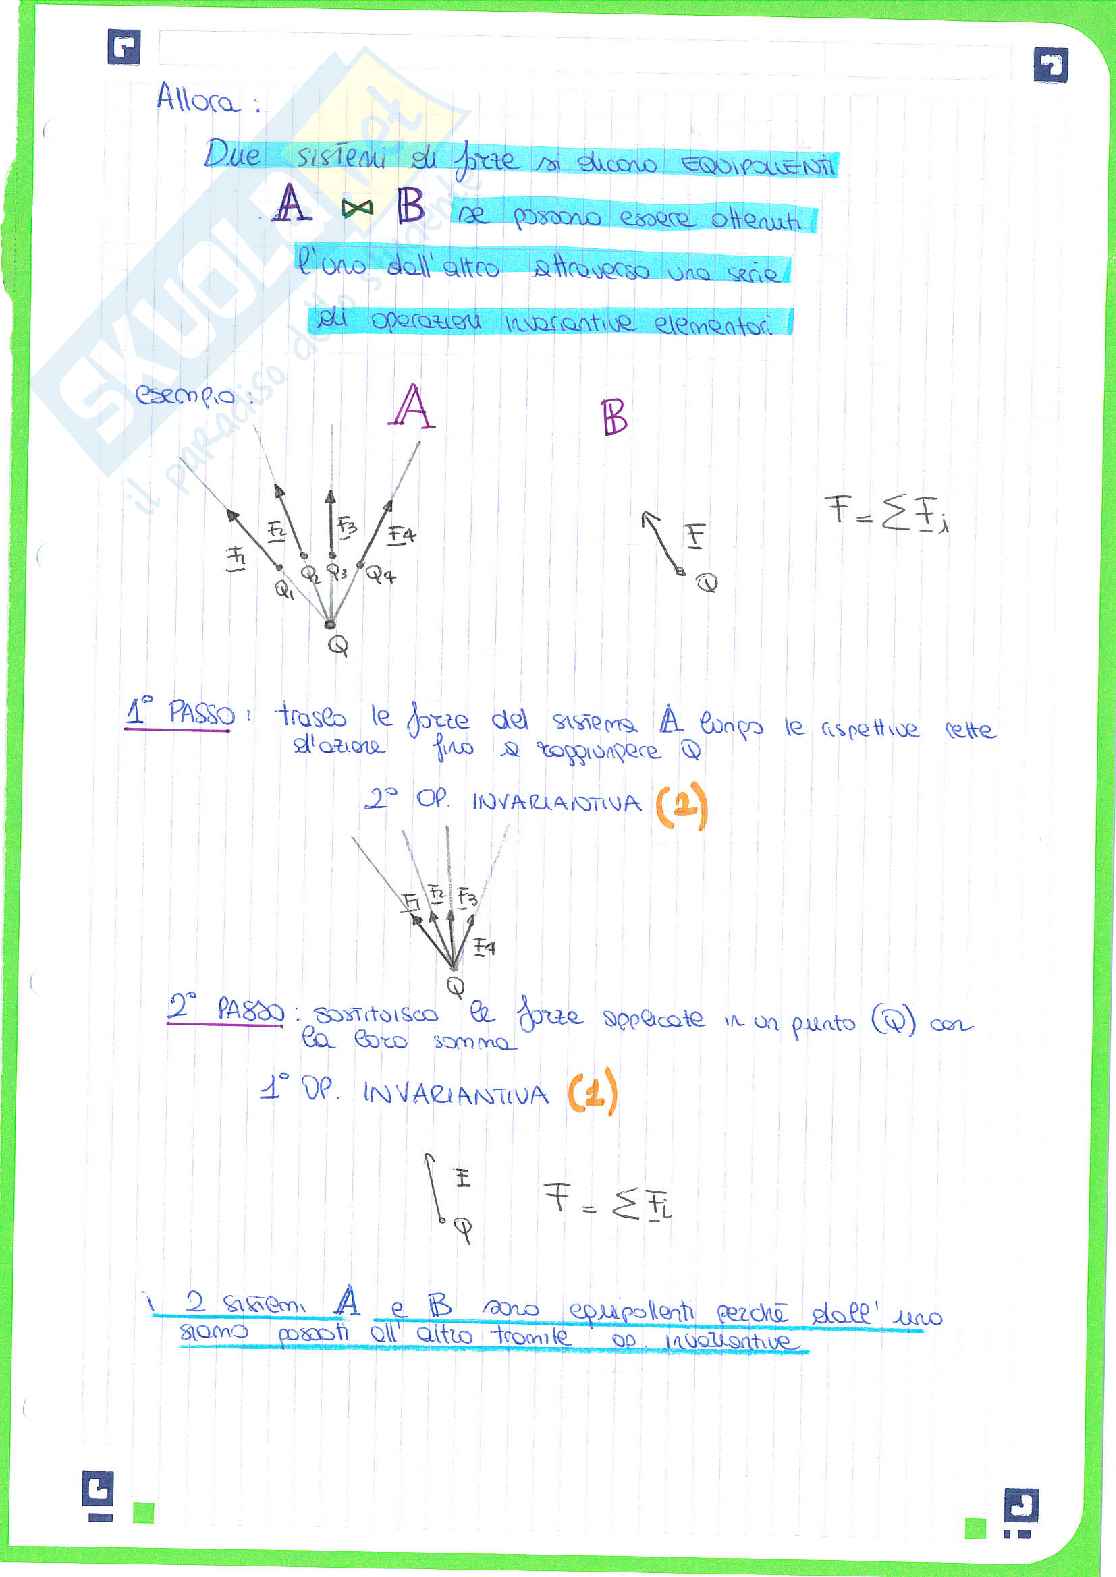 Allora :
Due sistemi di forze si dicono EQUIPOLLENTI
A ⋈ B se possono essere ottenuti
l'uno dall'altro attraverso una serie
di operazioni invariantive elementari.
esempio :
A B
F1 F2 F3 F4
Q1 Q2 Q3 Q4
Q
F
Q
F = ∑ Fi
1° PASSO : traslo le forze del sistema A lungo le rispettive rette
d'azione fino a raggiungere Q
2° OP. INVARIANTIVA (2)
F1 F2 F3
F4
Q
2° PASSO : sostituisco le forze applicate in un punto (Q) con
la loro somma
1° OP. INVARIANTIVA (1)
F
Q
F = ∑ Fi
i 2 sistemi A e B sono equipollenti perché dall'uno
siamo passati all'altro tramite op. invariantive
SKUOLA.net
il paradiso dello studente